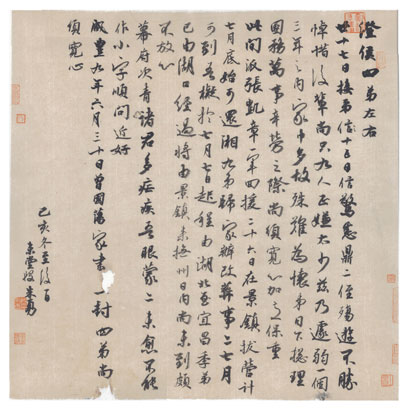 澄侯四弟左右
廿七日接弟信十五日信驚悉鼎二侄殤逝不勝
悼惜後輩尚只九人正嫌太少茲乃遽弱一個
三年之內家中多故殊難為懷弟日下搃理
團務萬事叢勞之際尚須寬心加意保重
此間派張凱章軍四援二十六日在景鎮拔營計
七月底始可還湘九弟歸家辦改葬事二七月
可到吾擬於七月七日起程由湖北至宜昌季弟
已由湖口經過將由景鎮來撫州日內尚未到頗
不放心
幕府次青諸君多症疾吾眼蒙二未愈不能
作小字順問近好
咸豐九年六月三十日曾國藩家書一封四弟尚
須寬心
己亥冬至後百